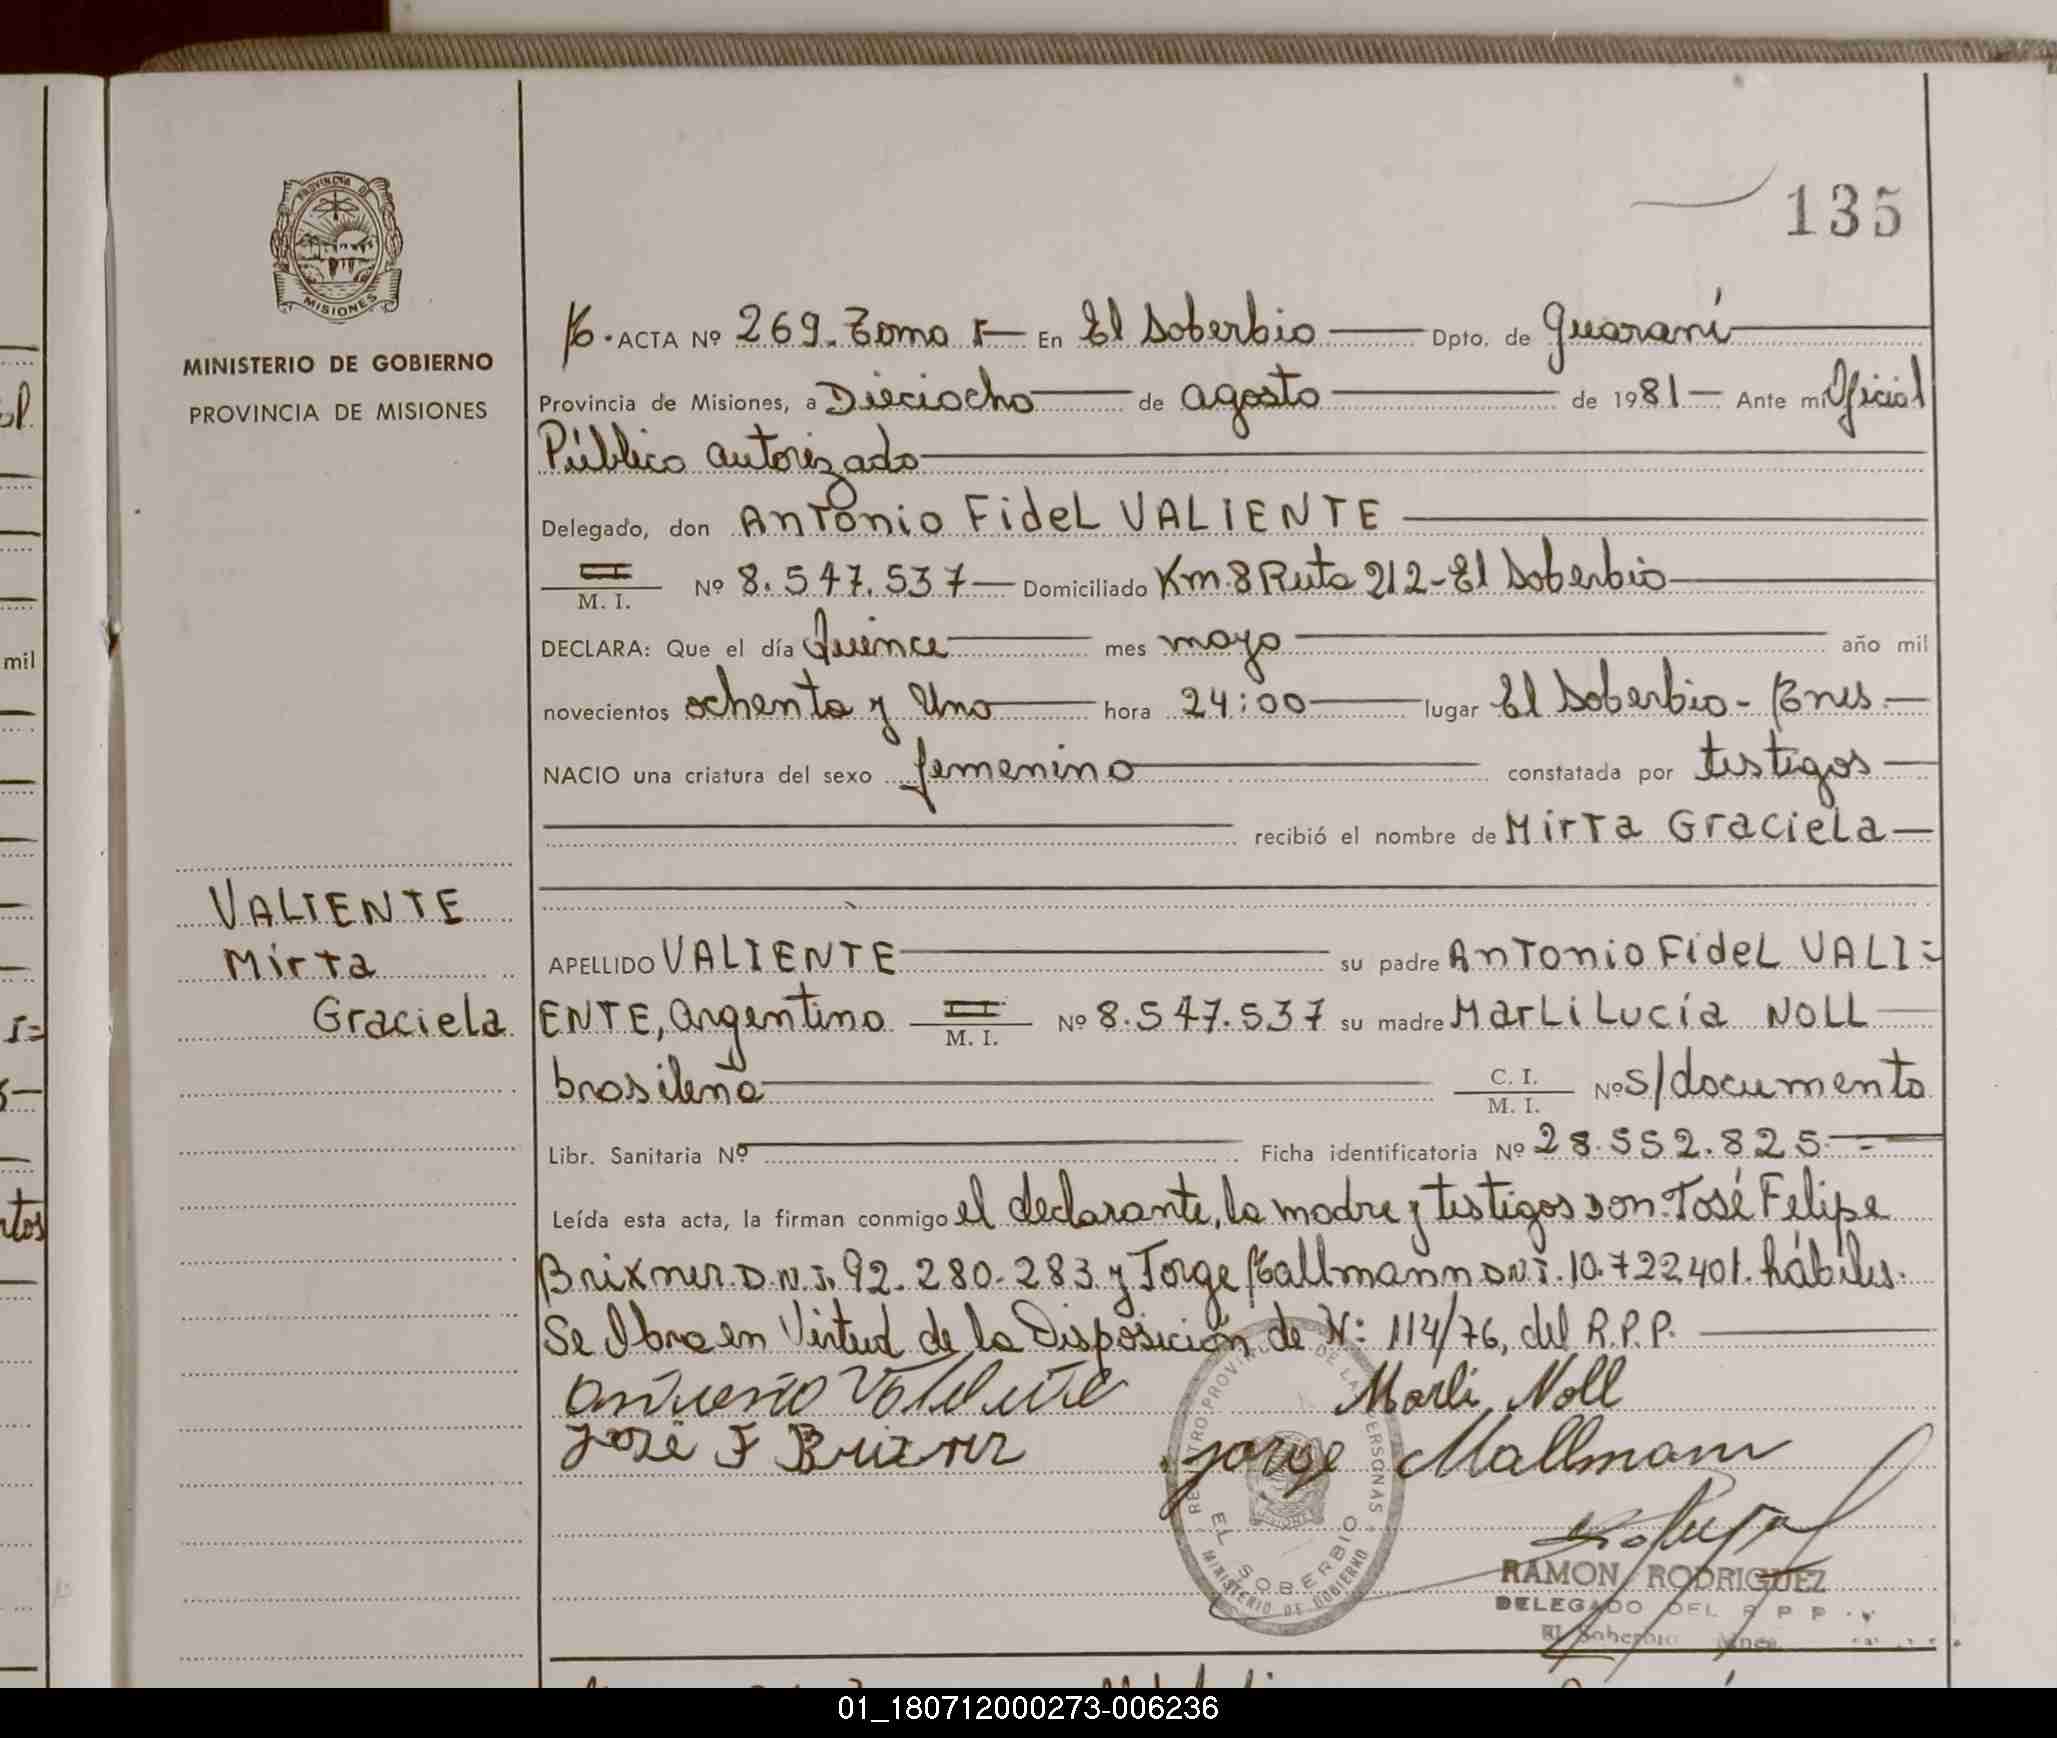 135
PROVINCIA DE
MISIONES
MINISTERIO DE GOBIERNO
PROVINCIA DE MISIONES
ACTA Nº 269. Tomo I En El Soberbio Dpto. de Guaraní
Provincia de Misiones, a Dieciocho de agosto de 1981 Ante mi Oficial
Público autorizado
Delegado, don Antonio Fidel VALIENTE
M. I. Nº 8.547.537 Domiciliado Km.8 Ruta 212-El Soberbio
DECLARA: Que el día Quince mes mayo año mil
novecientos ochenta y Uno hora 24:00 lugar El Soberbio-
NACIO una criatura del sexo femenino constatada por testigos
recibió el nombre de Mirta Graciela
VALIENTE
Mirta
Graciela
APELLIDO VALIENTE su padre Antonio Fidel VALI=
ENTE, argentino M. I. Nº 8.547.537 su madre Marli Lucía NOLL
brasileña C. I. M. I. Nº S/documento
Libr. Sanitaria Nº Ficha identificatoria Nº 28.552.825-
Leída esta acta, la firman conmigo el declarante, la madre y testigos don José Felipe
Brixner D.N.I. 92.280.283 y Jorge Mallmann D.N.I. 10.722.401. hábiles.
Se Obra en Virtud de la Disposición de Nº: 114/76, del R.P.P.
Antonio Valiente Marli Noll
José F Brixner Jorge Mallmann
REGISTRO PROVINCIAL DE LAS PERSONAS
EL SOBERBIO
MINISTERIO DE GOBIERNO
RAMON RODRIGUEZ
DELEGADO DEL R P P
El Soberbio
mil
01_180712000273-006236